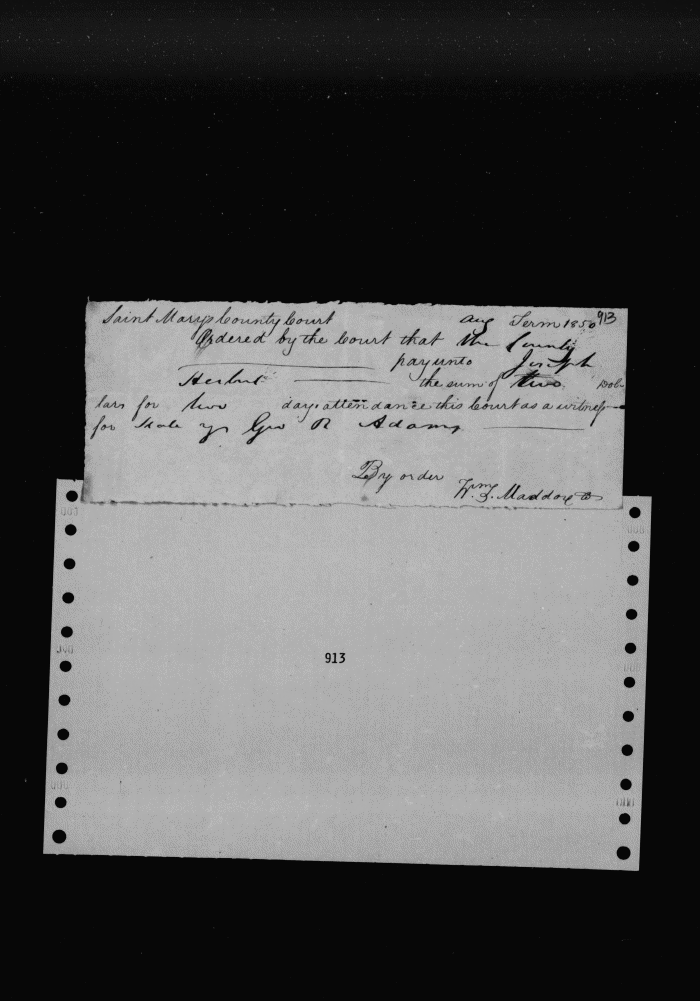 Saint Marys County Court Aug Term 1850 913
Ordered by the Court that the County
pay unto Joseph
Herbert the sum of two Dol-
lars for two days attendance this Court as a witness
for State vs Geo R Adams
By order
Wm. T. Maddox
913